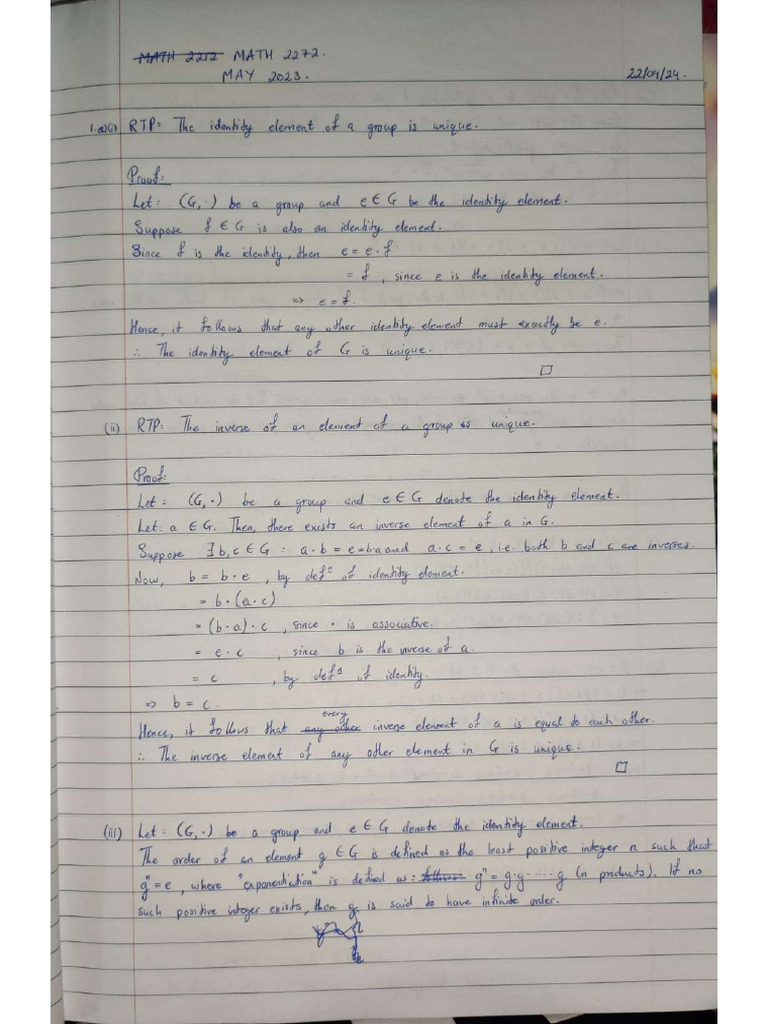 MATH 2212 MATH 2272.
MAY 2023. 22/04/24.
1.a)(i) RTP: The identity element of a group is unique.
Proof:
Let: (G,·) be a group and e ∈ G be the identity element.
Suppose f ∈ G is also an identity element.
Since f is the identity, then e = e·f
= f, since e is the identity element.
⇒ e = f.
Hence, it follows that any other identity element must exactly be e.
∴ The identity element of G is unique.
□
(ii) RTP: The inverse of an element of a group is unique.
Proof:
Let: (G,·) be a group and e ∈ G denote the identity element.
Let: a ∈ G. Then, there exists an inverse element of a in G.
Suppose ∃ b, c ∈ G : a·b = e = b·a and a·c = e, i.e. both b and c are inverses.
Now, b = b·e, by defⁿ of identity element.
= b·(a·c)
= (b·a)·c, since · is associative.
= e·c, since b is the inverse of a.
= c, by defⁿ of identity.
⇒ b = c.
Hence, it follows that any other every inverse element of a is equal to each other.
∴ The inverse element of any other element in G is unique.
□
(iii) Let: (G,·) be a group and e ∈ G denote the identity element.
The order of an element g ∈ G is defined as the least positive integer n such that
gⁿ = e, where "exponentiation" is defined as: gⁿ = g·g·····g (n products). If no
such positive integer exists, then g is said to have infinite order.